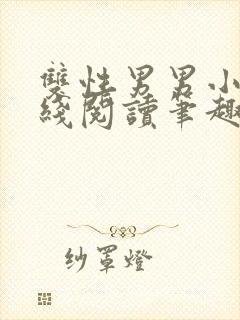 雙性男男小
綫閱讀筆趣
紗罩燈